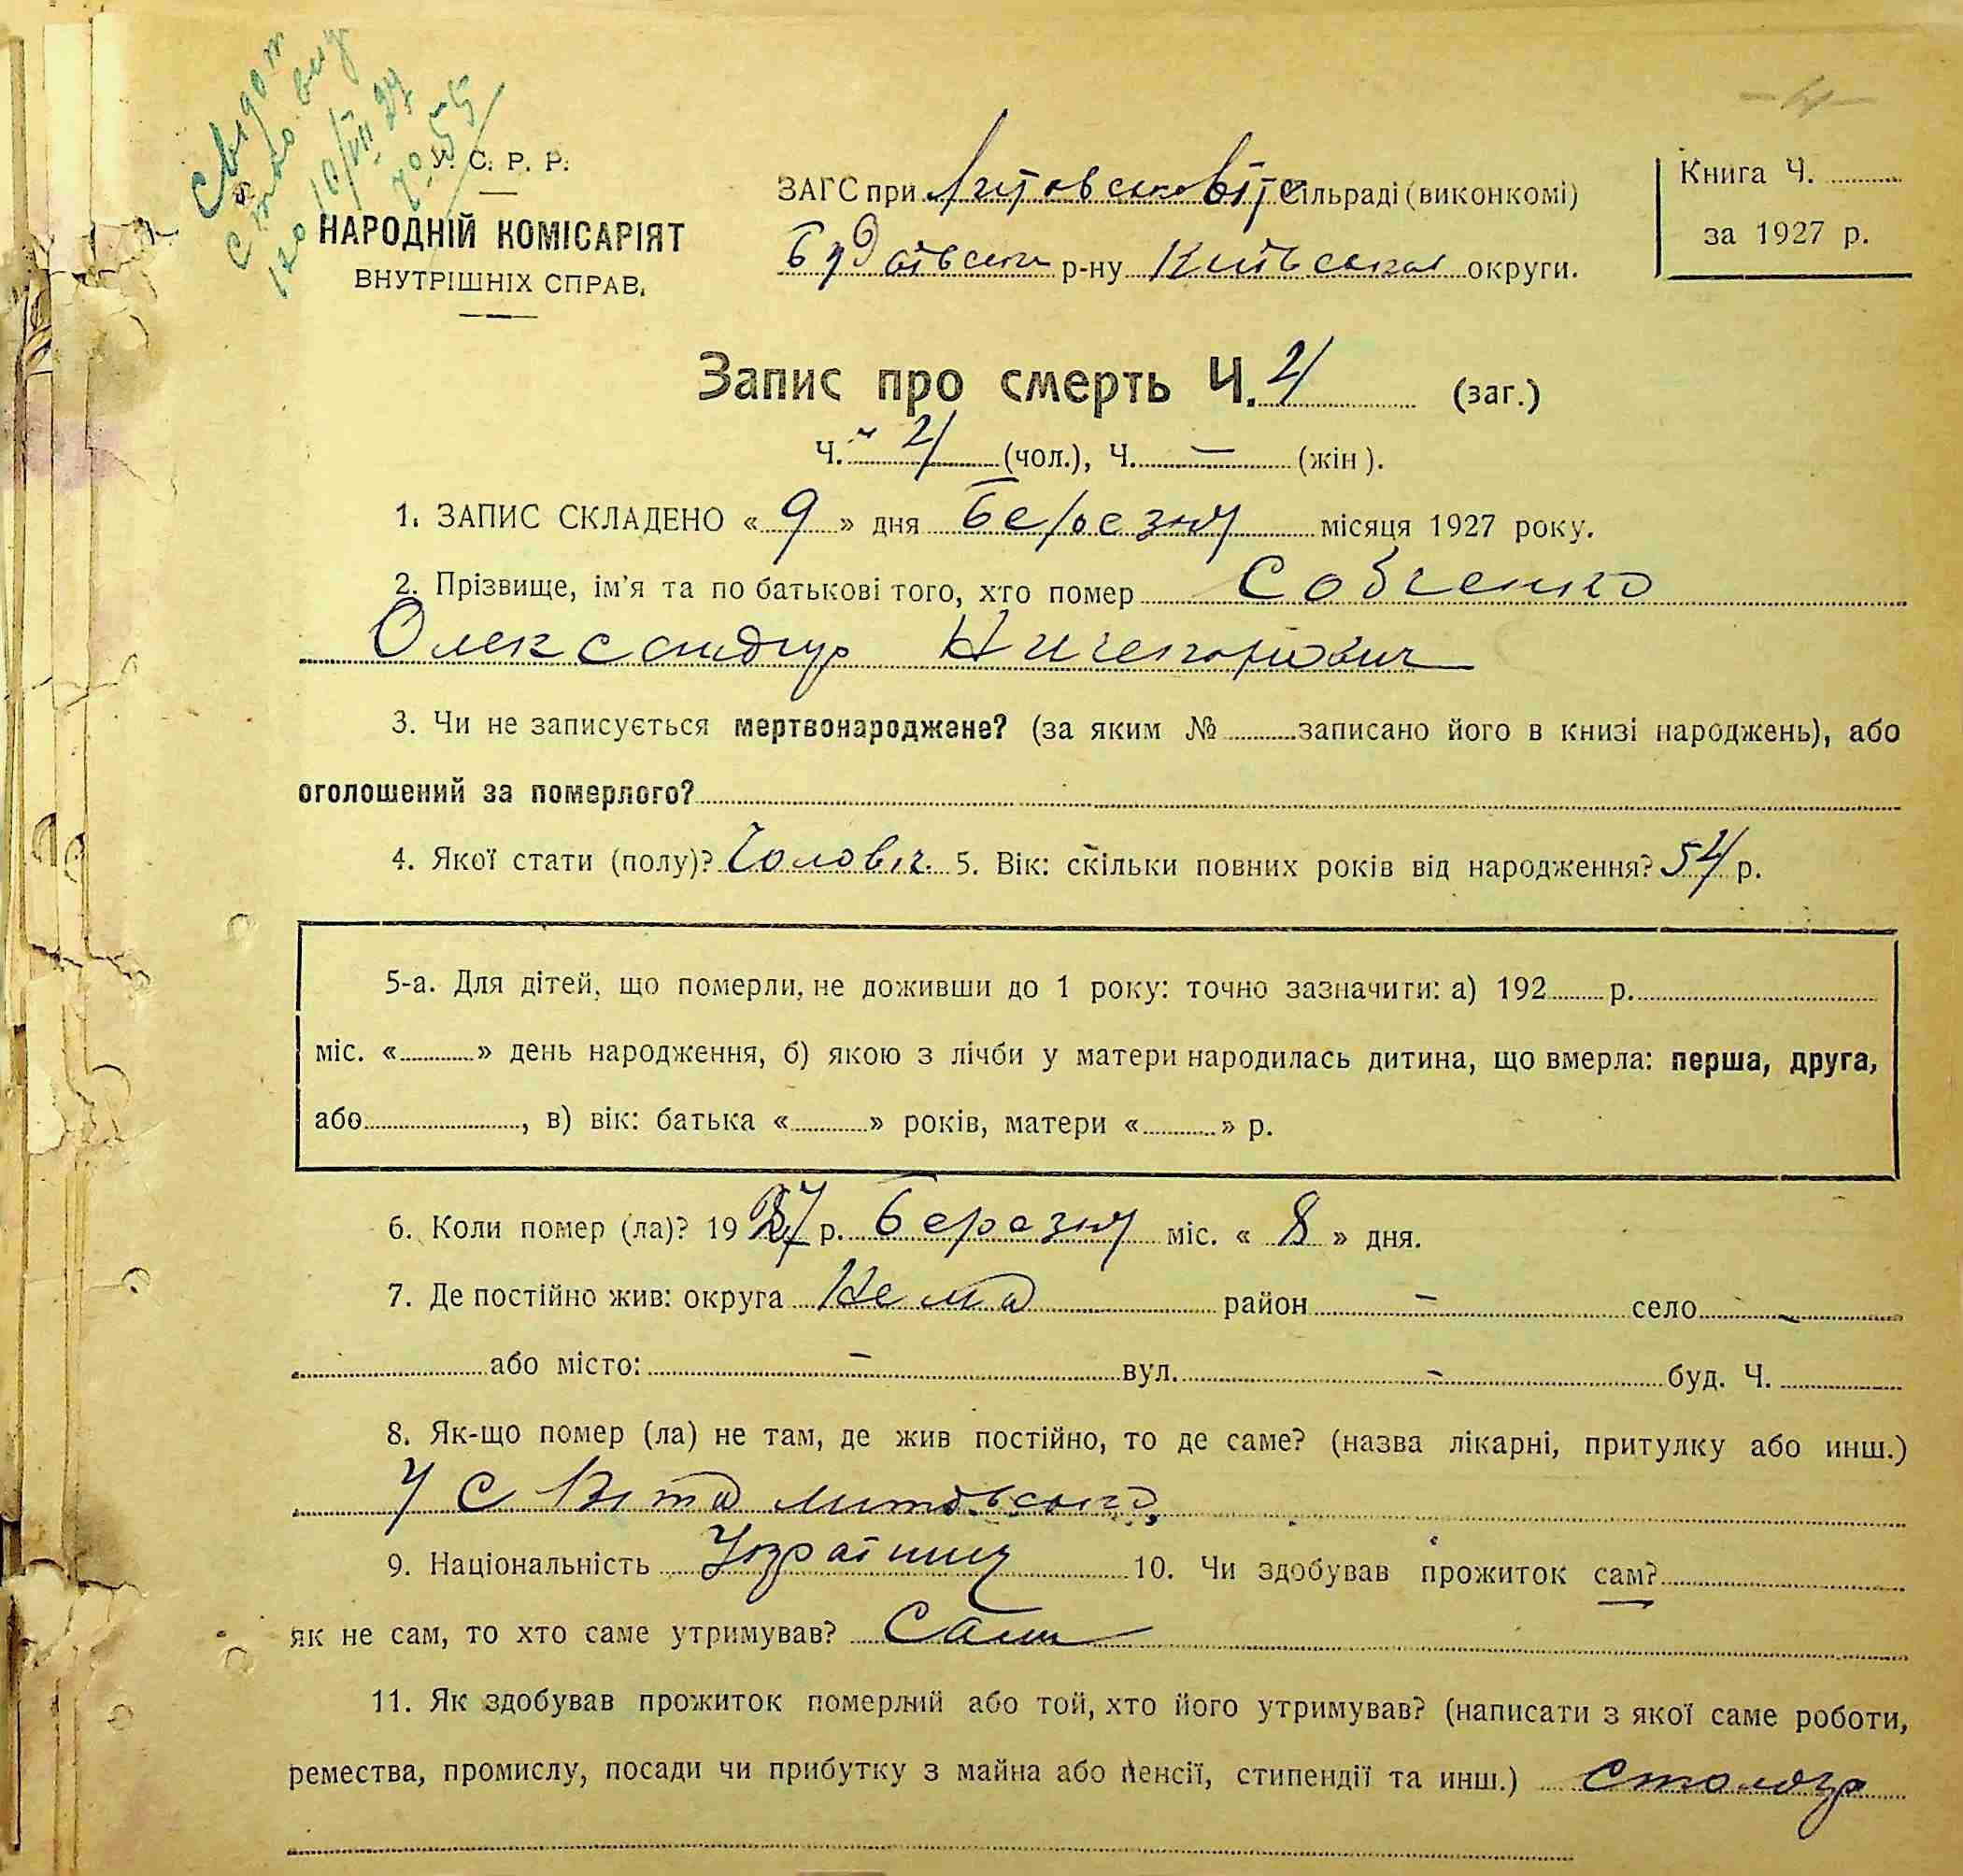 Свідот
смт. вид
10/VIII 27
У. С. Р. Р.
НАРОДНІЙ КОМІСАРІЯТ
ВНУТРІШНІХ СПРАВ.
ЗАГС при Литовсько Віт. Сільраді (виконкомі)
Будаївськ р-ну Київської округи.
Книга Ч.
за 1927 р.
Запис про смерть Ч. 4 (заг.)
Ч. 4 (чол.), Ч. — (жін).
1. ЗАПИС СКЛАДЕНО « 9 » дня Березня місяця 1927 року.
2. Прізвище, ім'я та по батькові того, хто помер Собченко
Олександир Ничепорович
3. Чи не записується мертвонароджене? (за яким № записано його в книзі народжень), або
оголошений за померлого?
4. Якої стати (полу)? Чоловіч. 5. Вік: скільки повних років від народження? 54 р.
5-а. Для дітей, що померли, не доживши до 1 року: точно зазначити: а) 192 р.
міс. « » день народження, б) якою з лічби у матери народилась дитина, що вмерла: перша, друга,
або , в) вік: батька « » років, матери « » р.
6. Коли помер (ла)? 1927 р. березня міс. « 8 » дня.
7. Де постійно жив: округа Нема район — село —
або місто: — вул. — буд. Ч.
8. Як-що помер (ла) не там, де жив постійно, то де саме? (назва лікарні, притулку або инш.)
У с Віта литовською,
9. Національність Українец 10. Чи здобував прожиток сам?
як не сам, то хто саме утримував? Сам
11. Як здобував прожиток померлий або той, хто його утримував? (написати з якої саме роботи,
ремества, промислу, посади чи прибутку з майна або пенсії, стипендії та инш.) столяр